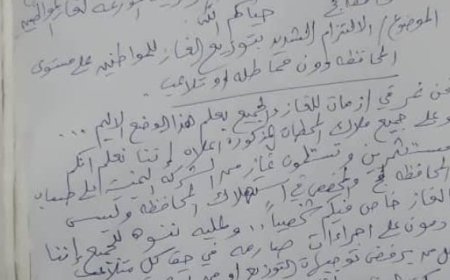 حياكم الله
الموضوع / الالتزام الشديد بتوزيع الغاز للمواطنين على مستوى
المحافظة دون مماطله او تلاعب
نحن نمر في ازمات للغاز والجميع يعلم هذا الوضع الاليم ...
وعلى جميع ملاك المحطات المذكورة اعلاه اننا نعلم انكم
مستثمرين وتستلمون غاز من الشركة اليمنية على حساب
المحافظة ومخصص في استهلاك المحافظة وليس
الغاز خاص فيكم شخصياً .. وعليه ننوه للجميع إننا
على اجراءات صارمه في حق كل متلاعب
من يرفض التوزيع او